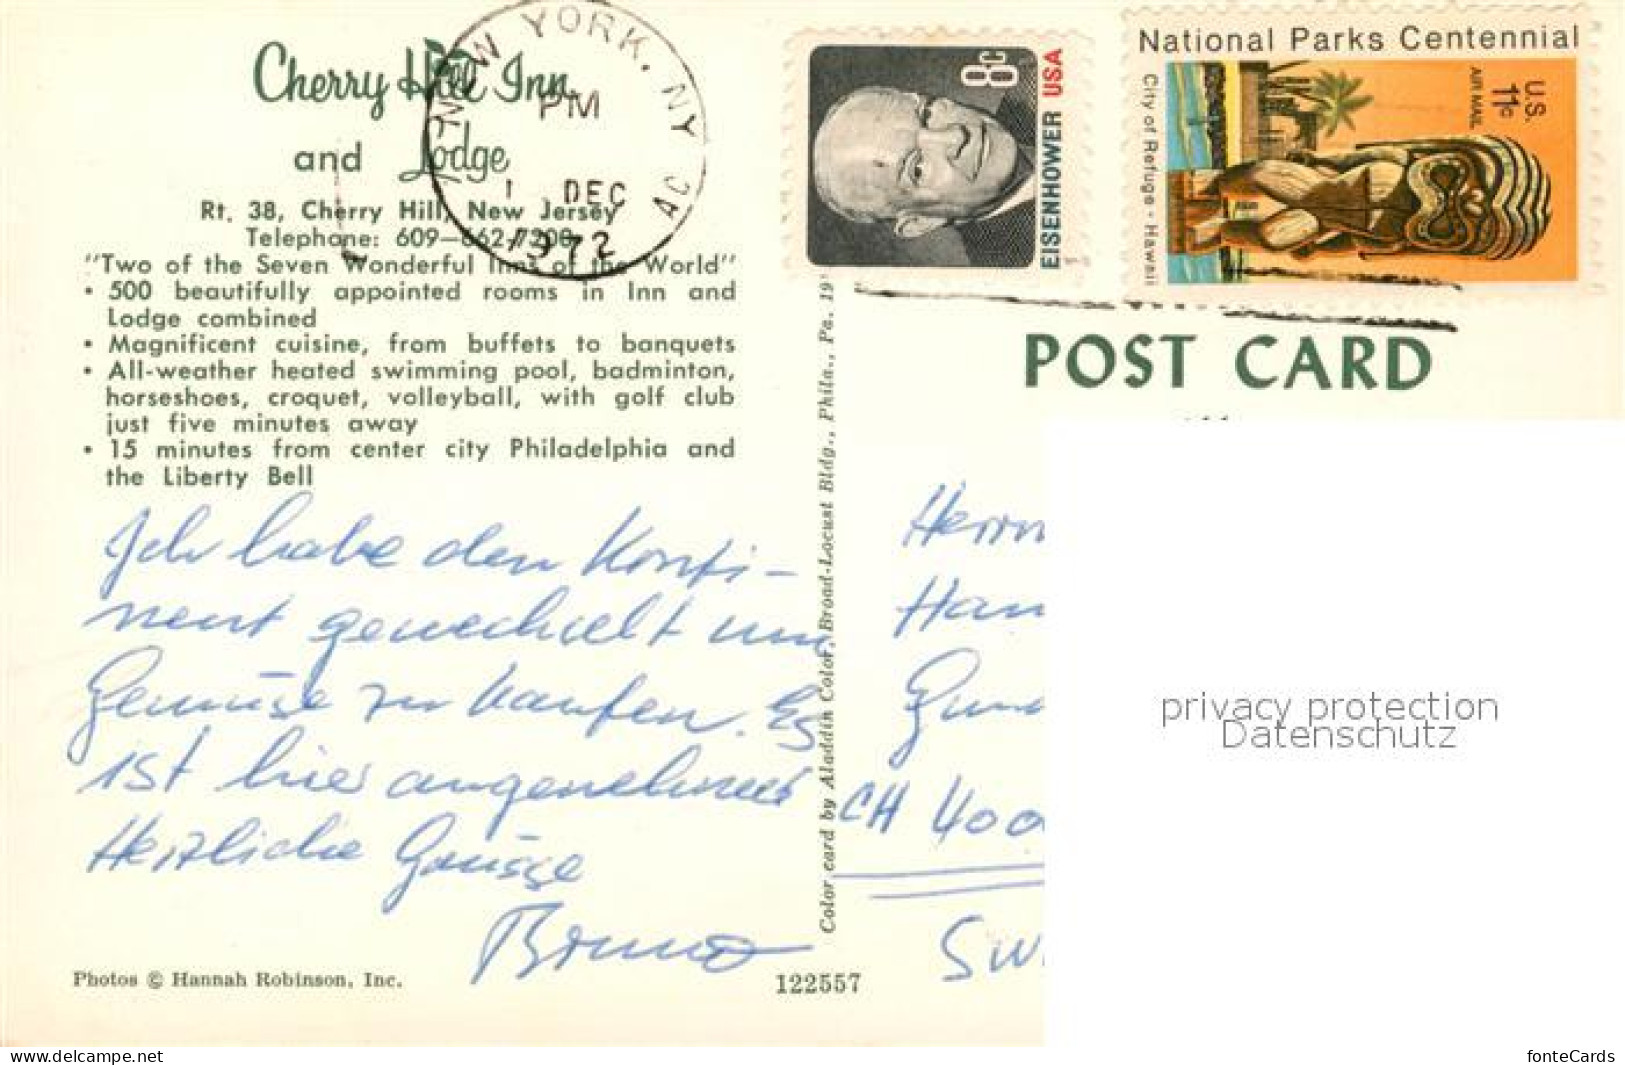 Cherry Hill Inn
and Lodge
Rt. 38, Cherry Hill, New Jersey
Telephone: 609—662-7200
"Two of the Seven Wonderful Inns of the World"
• 500 beautifully appointed rooms in Inn and
Lodge combined
• Magnificent cuisine, from buffets to banquets
• All-weather heated swimming pool, badminton,
horseshoes, croquet, volleyball, with golf club
just five minutes away
• 15 minutes from center city Philadelphia and
the Liberty Bell
NEW YORK, NY
PM
1 DEC
1972
AC
Ich habe den Konti-
nent gewechselt um
Gemüse zu kaufen. Es
ist hier angenehmer
Herzliche Grüsse
Bruno
Photos © Hannah Robinson, Inc.
122557
Color card by Aladdin Color, Broad-Locust Bldg., Phila., Pa. 19
8c
EISENHOWER USA
National Parks Centennial
City of Refuge • Hawaii
U.S.
11c
AIR MAIL
POST CARD
Herrn
Han
CH 400
Sw
privacy protection
Datenschutz
www.delcampe.net
fonteCards